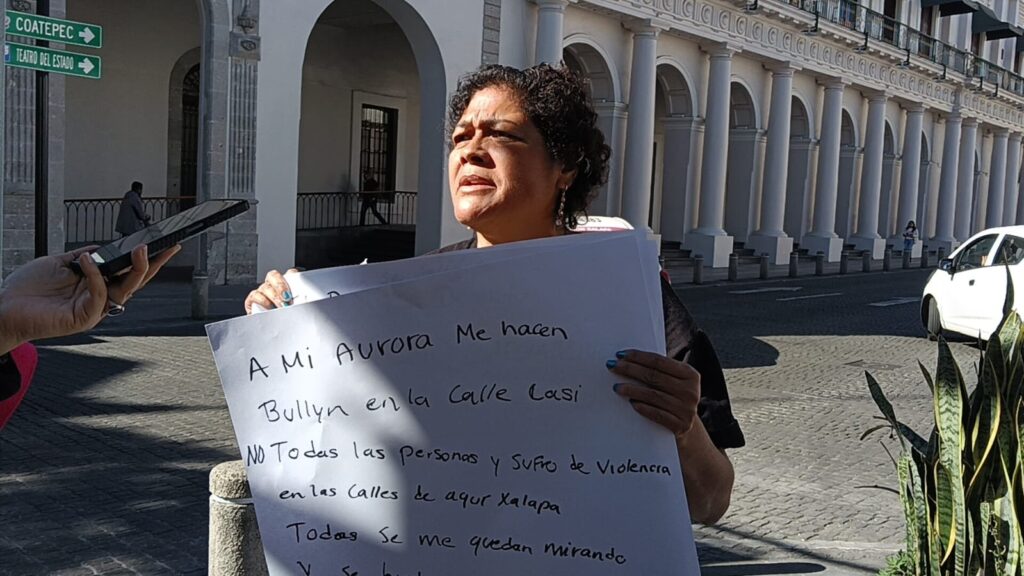 COATEPEC
TEATRO DEL ESTADO
A Mi AURORA Me hacen
Bullyn en la Calle Casi
NO Todas las personas y Sufro de Violencia
en las Calles de aqur Xalapa
Todas Se me quedan mirando
y se